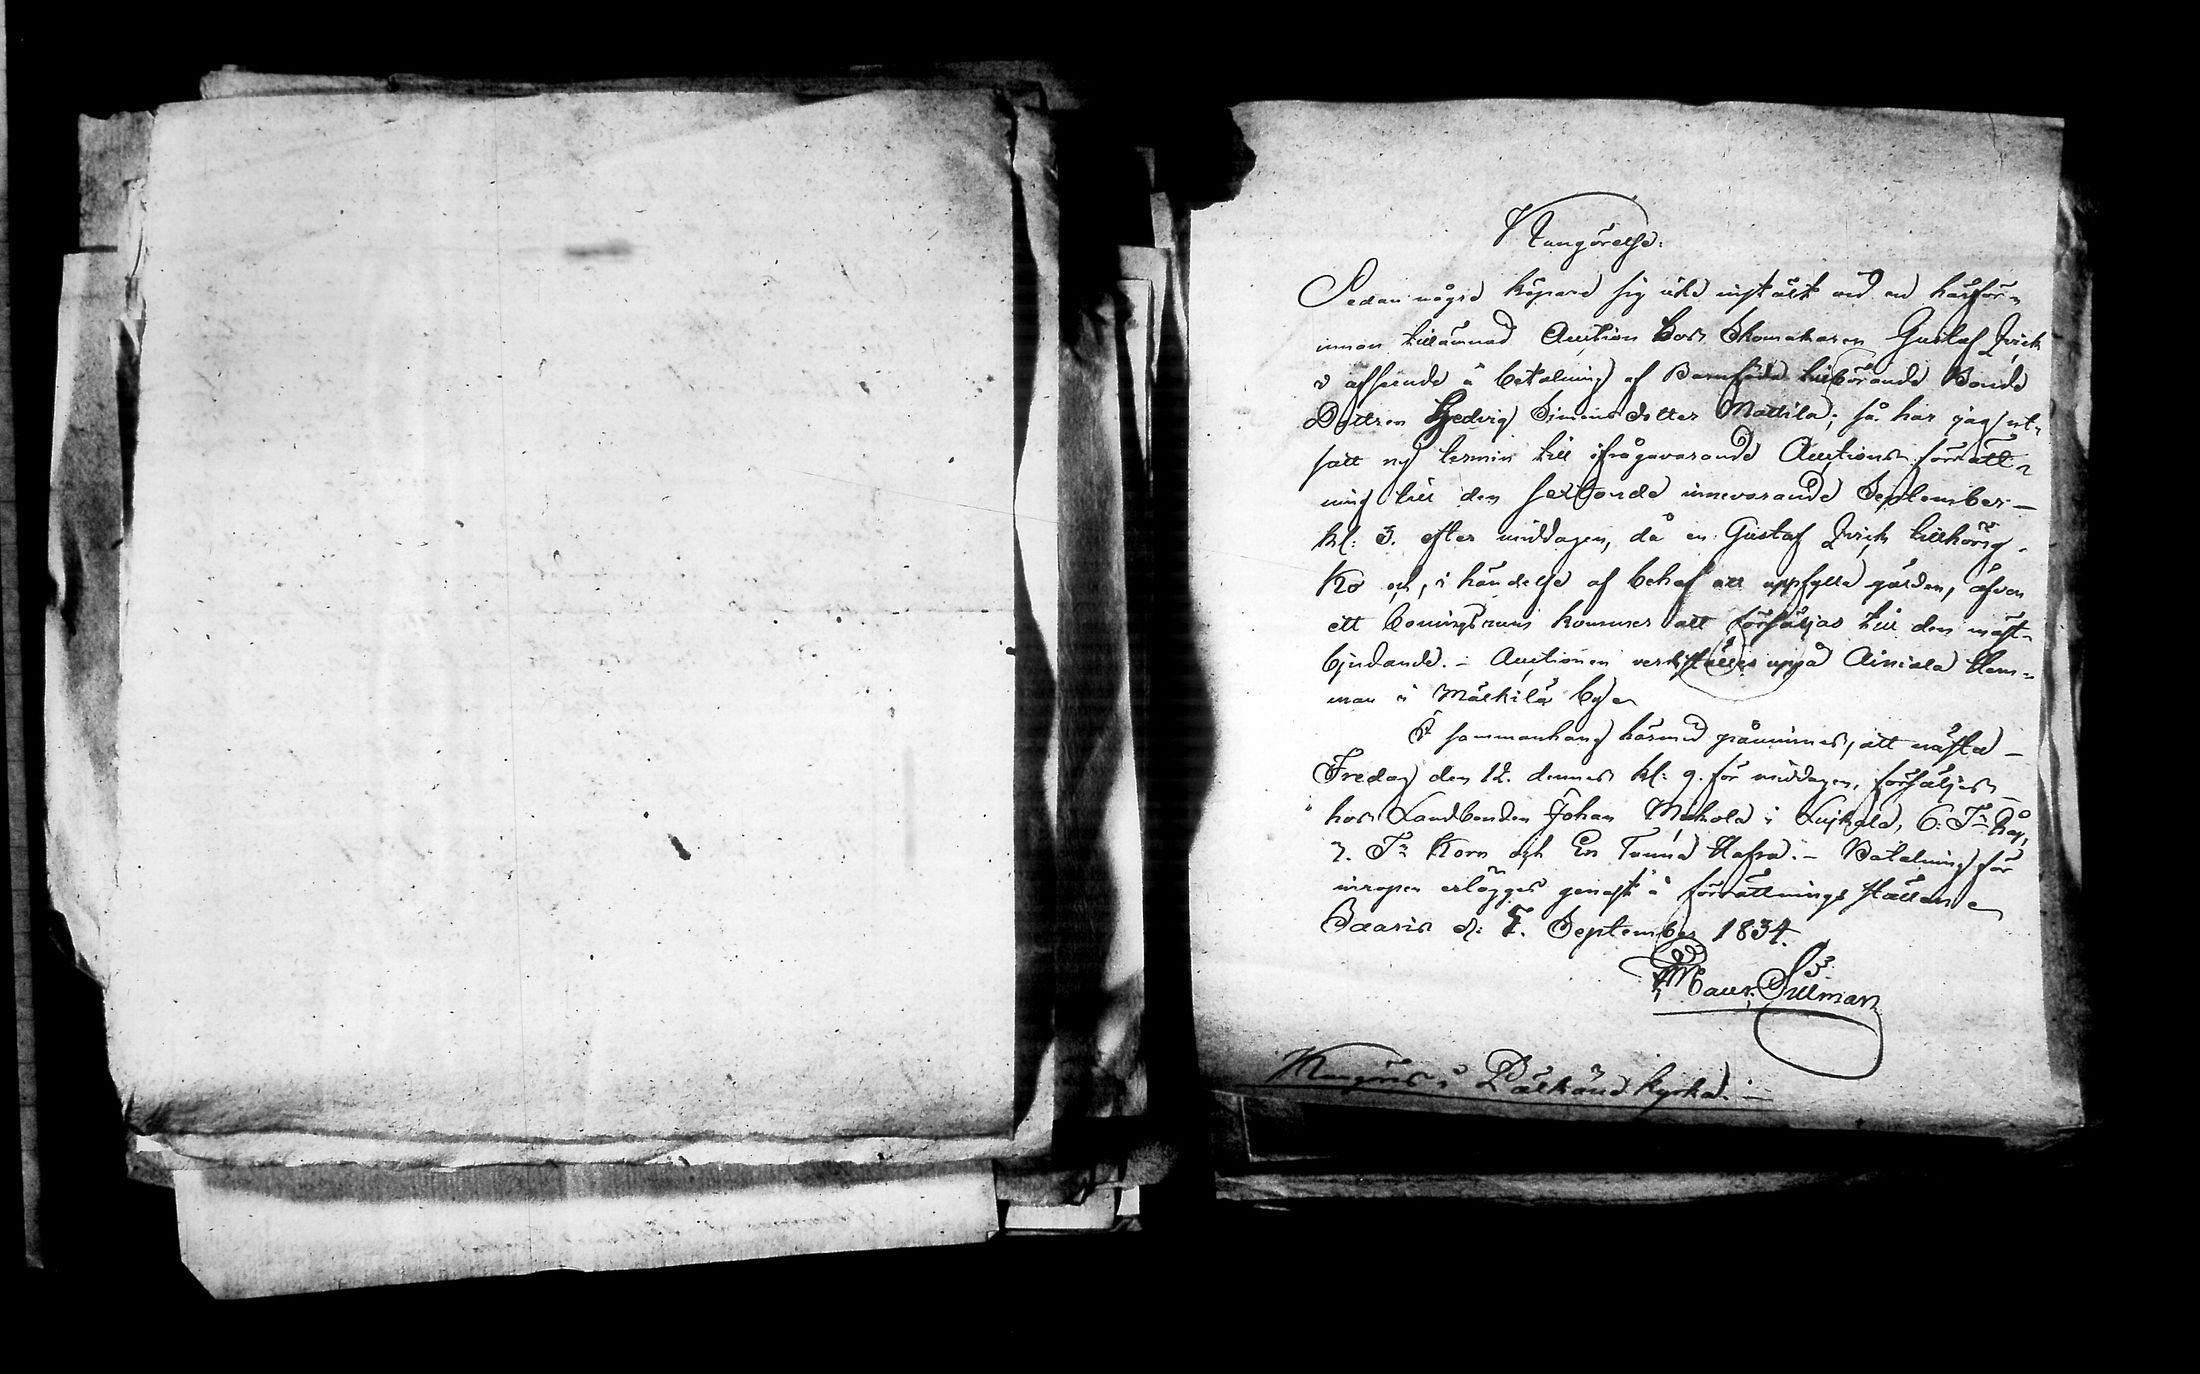 Kungörelse:
Sedan någre köpare sig icke instält vid en härför-
innan tillämnad Auction hos Skomakaren Gustaf Qvick
i afseende å betalning af Barnföda tillhörande Bonde
Dottren Hedvig Simonsdotter Mattila; så har jag ut-
satt ny termin till ifrågavarande Auctions förrätt-
ning till den sextonde innevarande September
kl: 3. efter middagen, då en Gustaf Qvick tillhörig
Ko och, i händelse af behof att uppfylla gälden, äfven
ett boningsrum kommer att försäljas till den mäst-
bjudande. - Auctionen verkställes uppå Ainiala Hem-
man i Mälkilä by
I sammanhang härmed påminnes, att nästa
Fredag den 12. dennes kl: 9. för middagen, försäljes
hos Landbonden Johan Mockola i Luikala, 6. Tr Råg,
7. Tr Korn och En Tunna Hafra. - Betalning för
inropen erlägges genast å förrättnings ställen
Saaris d: 7. September 1834.
Maur. Sillman
Kungöres i Pälkäne kyrka. -